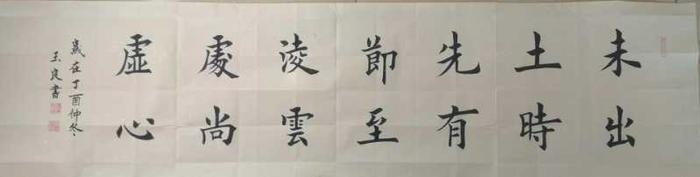 未出
土時
先有
節至
淩雲
處尚
虛心
歲在丁酉仲冬
玉良書